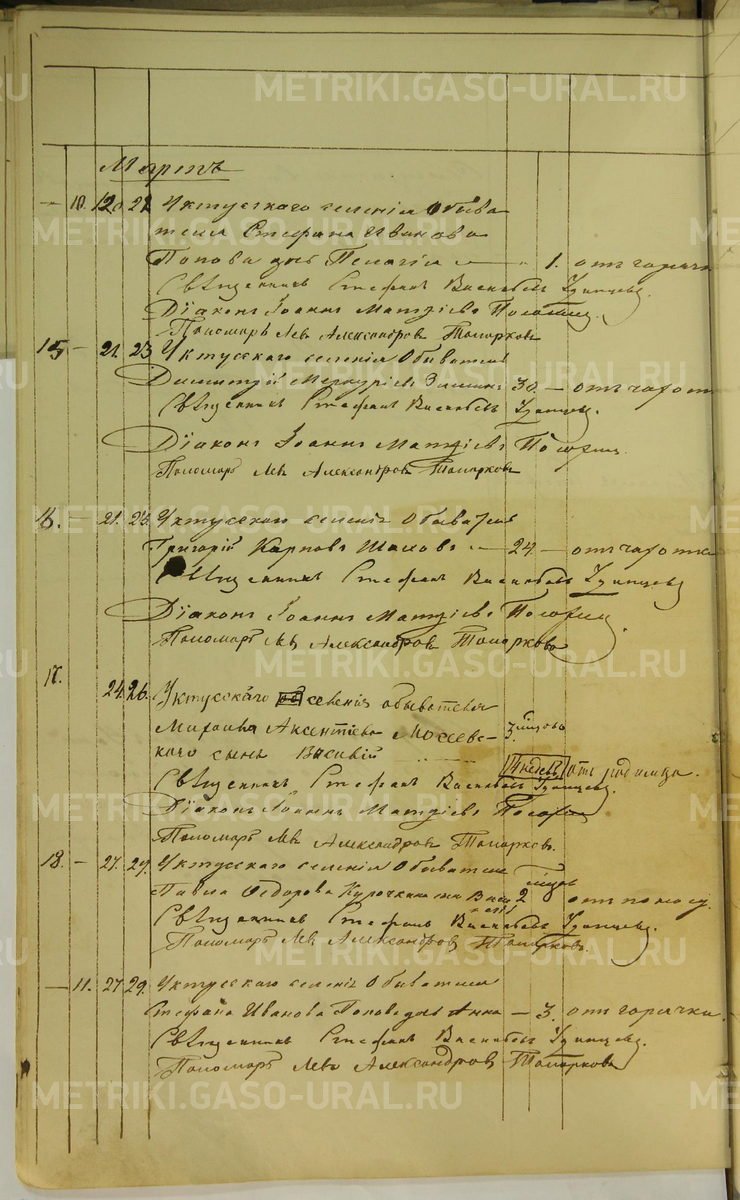 METRIKI.GASO-URAL.RU
Мартъ
— 10. 20 22 Уктусскаго селенія Обыва
теля Стефана Иванова
Попова дчь Пелагія — 1. отъ горячк
Священникъ Стефанъ Васильевъ Удинцевъ.
Діаконъ Іоаннъ Матфіевъ
Пономарь Левъ Александровъ Топорковъ
15 — 21. 23 Уктусскаго селенія Обыватель
Димитрій Меркуріевъ 30 — отъ чахот
Священникъ Стефанъ Васильевъ Удинцевъ.
Діаконъ Іоаннъ Матфіевъ
Пономарь Левъ Александровъ Топорковъ
16. — 21. 23. Уктусскаго селенія Обыватель
Григорій Карповъ — 24 — отъ чахотки
Священникъ Стефанъ Васильевъ Удинцевъ
Діаконъ Іоаннъ Матфіевъ
Пономарь Левъ Александровъ Топорковъ
17. 24. 26. Уктусскаго селенія обывателя
Михаила Аксентіева Мосеев-
скаго сынъ Василій 3. мѣсяцъ
4 недель отъ родимца.
Священникъ Стефанъ Васильевъ Удинцевъ
Діаконъ Іоаннъ Матфіевъ
Пономарь Левъ Александровъ Топорковъ.
18. — 27. 29. Уктусскаго селенія Обывателя
Павла Федорова Курочкина 2 мѣсяц отъ поносу.
Священникъ Стефанъ Васильевъ Удинцевъ.
Пономарь Левъ Александровъ Топорковъ.
— 11. 27 29. Уктусскаго селенія Обывателя
Стефана Иванова Попова дчь Анна — 3. отъ горячки.
Священникъ Стефанъ Васильевъ Удинцевъ.
Пономарь Левъ Александровъ Топорковъ